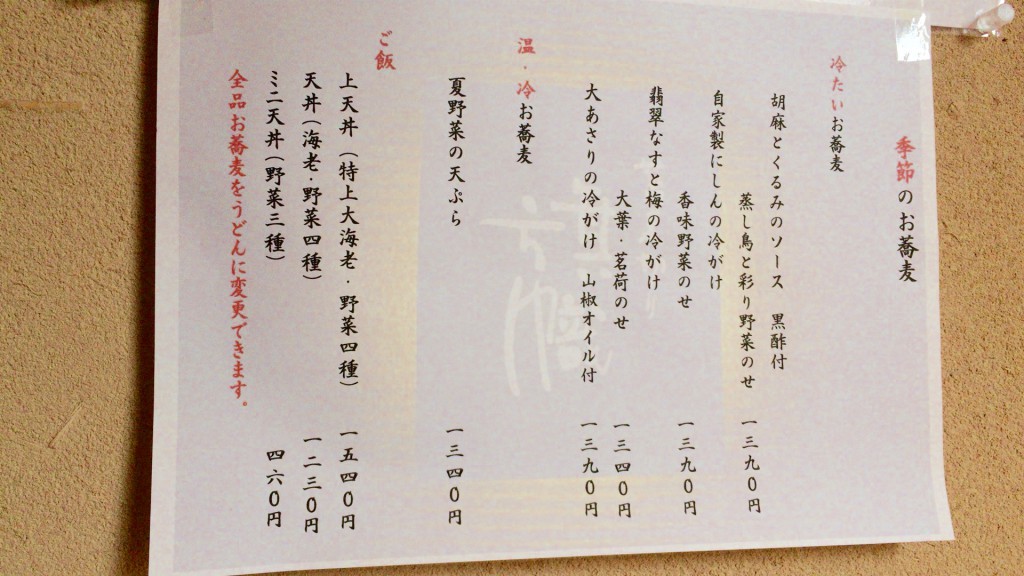 季節のお蕎麦
冷たいお蕎麦
胡麻とくるみのソース 黒酢付
蒸し鳥と彩り野菜のせ 一三九〇円
自家製にしんの冷がけ
香味野菜のせ 一三九〇円
翡翠なすと梅の冷がけ
大葉・茗荷のせ 一三四〇円
大あさりの冷がけ 山椒オイル付 一三九〇円
温・冷お蕎麦
夏野菜の天ぷら 一三四〇円
ご飯
上天丼(特上大海老・野菜四種) 一五四〇円
天丼(海老・野菜四種) 一二三〇円
ミニ天丼(野菜三種) 四六〇円
全品お蕎麦をうどんに変更できます。